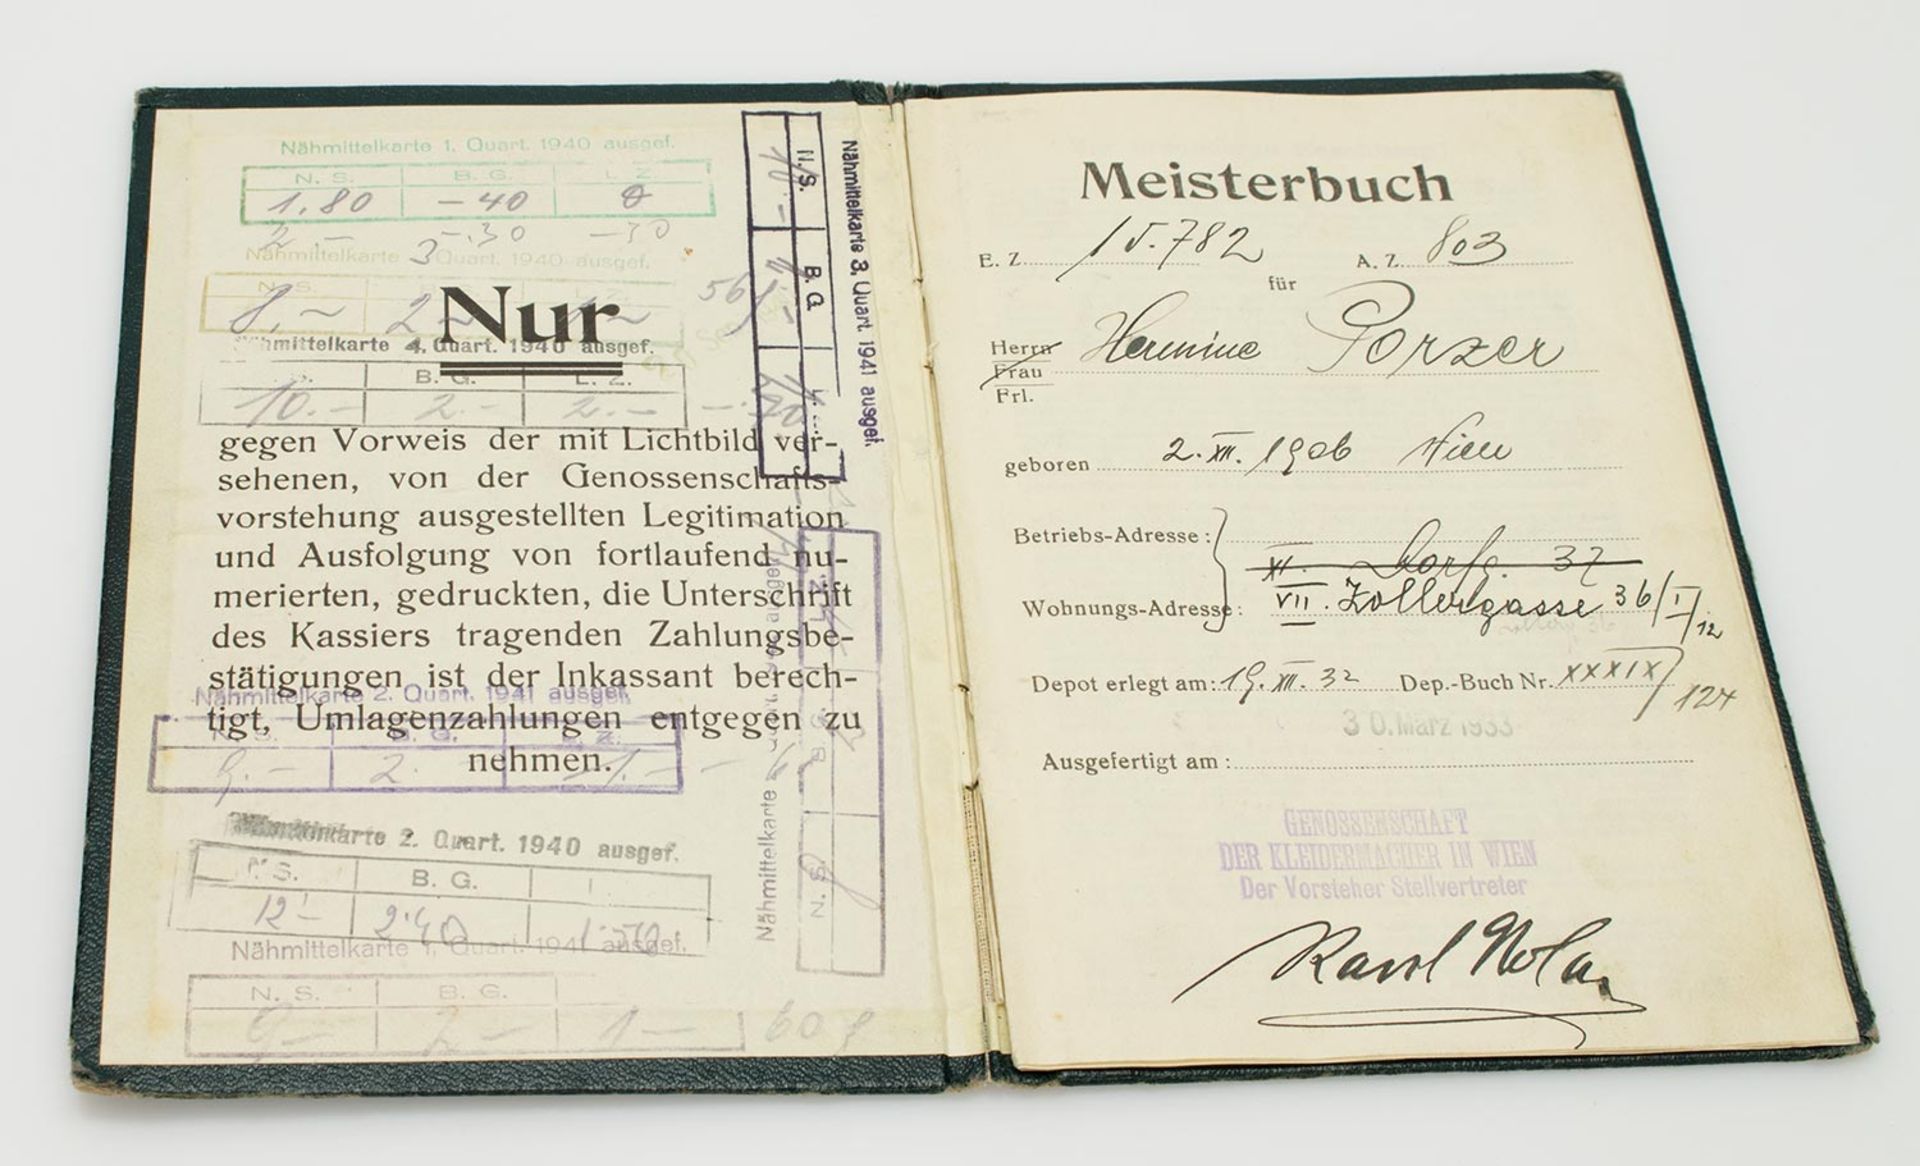 Nähmittelkarte 1. Quart. 1940 ausgef.
N. S. B. G. L. Z.
1.80 -40 0
2 - -.30 -30
Nähmittelkarte 3 Quart. 1940 ausgef.
N. S.
8.- 2
Nur
Nähmittelkarte 4. Quart. 1940 ausgef.
B. G. L. Z.
10.- 2.- 2.-
gegen Vorweis der mit Lichtbild ver-
sehenen, von der Genossenschafts-
vorstehung ausgestellten Legitimation
und Ausfolgung von fortlaufend nu-
merierten, gedruckten, die Unterschrift
des Kassiers tragenden Zahlungsbe-
stätigungen ist der Inkassant berech-
tigt, Umlagenzahlungen entgegen zu
nehmen.
Nähmittelkarte 2. Quart. 1941 ausgef.
N. S. B. G. L. Z.
9.- 2. 1.-
Nähmittelkarte 2. Quart. 1940 ausgef.
N. S. B. G.
12- 2.40
Nähmittelkarte 1. Quart. 1941 ausgef.
N. S. B. G.
9- 2- 1- 60
Nähmittelkarte 3. Quart. 1941 ausgef.
N. S. B. G.
Nähmittelkarte
N. S. B. G.
Meisterbuch
E. Z. 15.782 A. Z. 803
für
Herrn Hermine Porzer
Frau
Frl.
geboren 2. XII. 1906 Wien
Betriebs-Adresse:
XI. Dorfg. 37
Wohnungs-Adresse: VII. Zollergasse 36/I/12
Depot erlegt am: 19. XII. 32 Dep.-Buch Nr. XXXIX/124
30. März 1933
Ausgefertigt am:
GENOSSENSCHAFT
DER KLEIDERMACHER IN WIEN
Der Vorsteher Stellvertreter